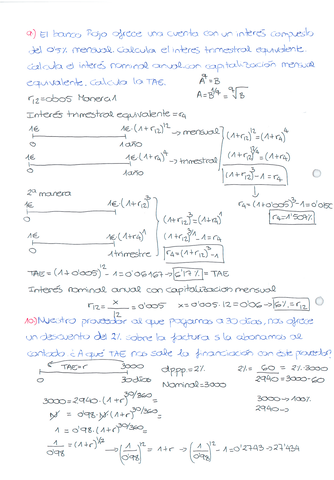 9) El banco Rioja ofrece una cuenta con un interés compuesto
del 0'5% mensual. Calcula el interés trimestral equivalente.
Calcula el interés nominal anual con capitalización mensual
equivalente. Calcula la TAE.
A⁴=B
A=B^1/4=⁴√B
r12=0'005 Manera 1
Interés trimestral equivalente=r4
1€ 1€·(1+r12)^12→mensual
0 1año
(1+r12)^12=(1+r4)^4
1€ 1€·(1+r4)^4→trimestral
0 1año
(1+r12)^12/4=(1+r4)
(1+r12)^3-1=r4
2ª manera
1€ 1€·(1+r12)^3
0
r4=(1+0'005)^3-1=0'0150
r4=1'507%
1€ 1€·(1+r4)^1
0 1trimestre
(1+r12)^3=(1+r4)^1
(1+r12)^3-1=r4
r4=(1+r12)^3-1
TAE=(1+0'005)^12-1=0'06167→6'17%=TAE
Interés nominal anual con capitalización mensual
r12=x/12=0'005 x=0'005·12=0'06→6%=r12
10) Nuestro proveedor al que pagamos a 30 días, nos ofrece
un descuento del 2% sobre la factura si la abonamos al
contado. ¿A qué TAE nos sale la financiación con este proveedor?
TAE=r 3000
0 30días
dppp=2%
Nominal=3000
2%=60=2%·3000
2940=3000-60
3000=2940·(1+r)^30/360
3000→100%
2940→
N=0'98·N(1+r)^30/360
1=0'98·(1+r)^30/360
1/0'98=(1+r)^1/12→(1/0'98)^12=1+r→(1/0'98)^12-1=0'2743→27'434